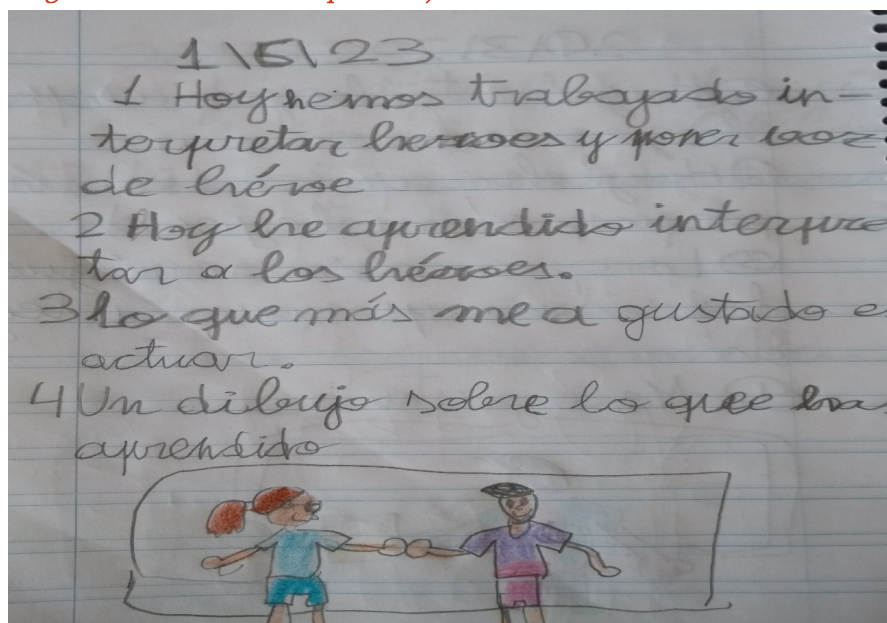 1\5\23
1 Hoy hemos trabajado in-
terpretar heroes y poner voz
de héroe
2 Hoy he aprendido interpre
tar a los héroes.
3 lo que más me a gustado e
actuar.
4 Un dibujo sobre lo que
aprendido